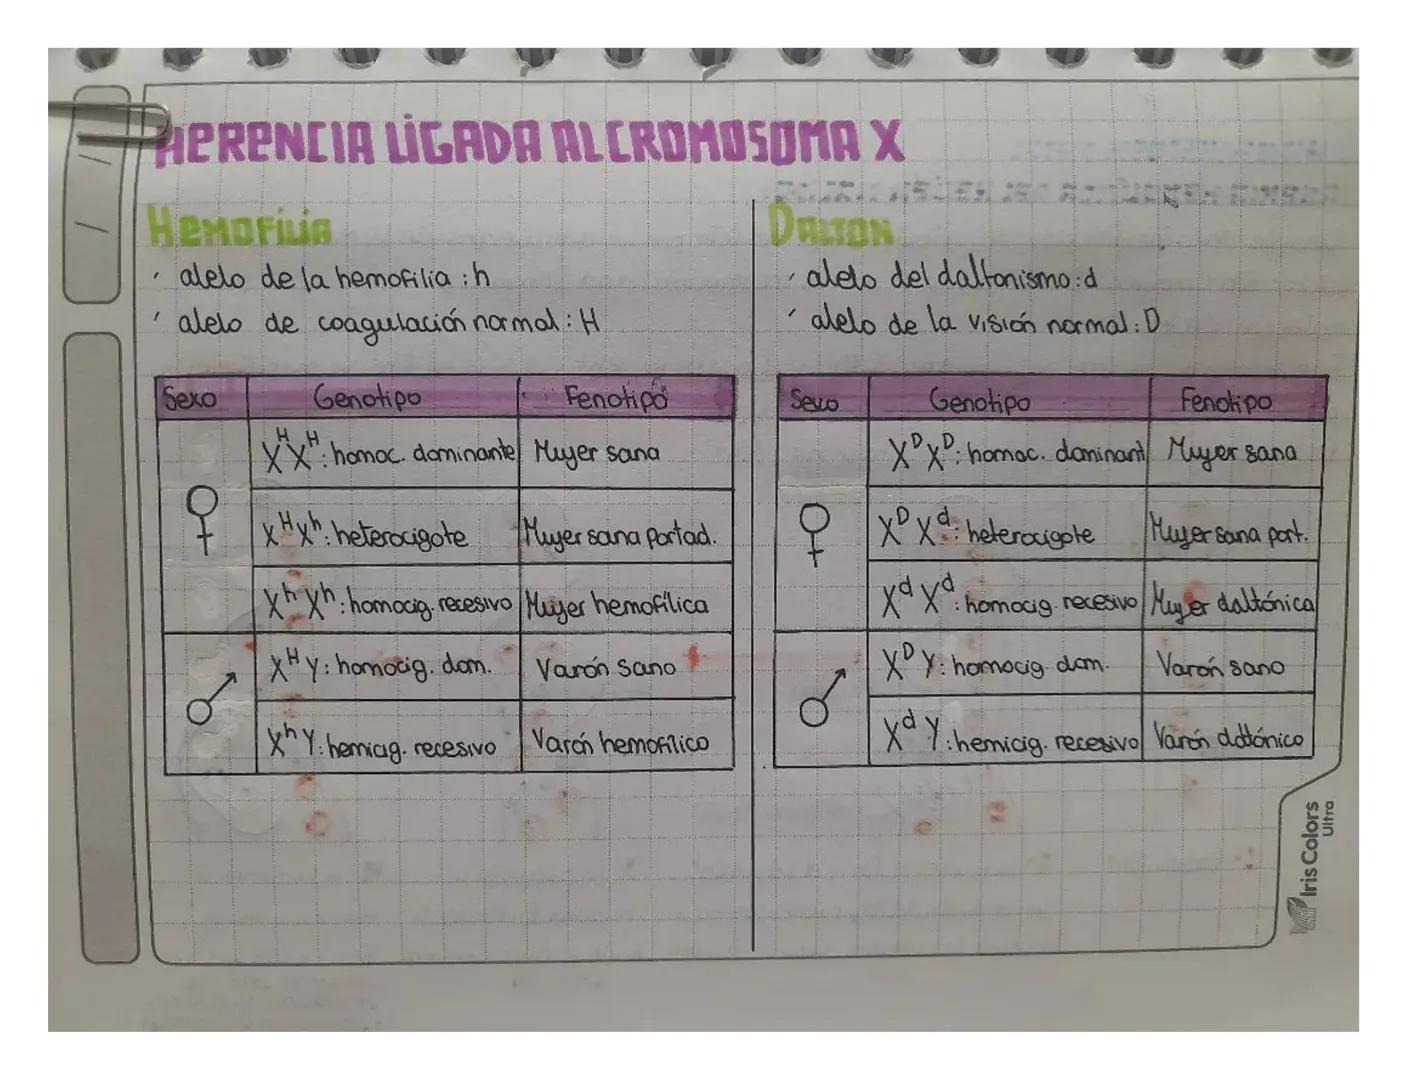 HERENCIA LIGADA AL CROMOSOMA X
HEMOFILIA
· alelo de la hemofilia : h
· alelo de coagulación normal : H
Sexo Genotipo Fenotipo
♀
XᴴXᴴ: homoc. dominante Mujer sana
XᴴXʰ: heterocigote Mujer sana portad.
XʰXʰ: homocig. recesivo Mujer hemofílica
♂
XᴴY: homocig. dom. Varón sano
XʰY: hemicig. recesivo Varón hemofílico
DALTON
· alelo del daltonismo : d
· alelo de la visión normal : D
Sexo Genotipo Fenotipo
♀
XᴰXᴰ: homoc. dominant Mujer sana
XᴰXᵈ: heterocigote Mujer sana port.
XᵈXᵈ: homocig. recesivo Mujer daltónica
♂
XᴰY: homocig. dom. Varón sano
XᵈY: hemicig. recesivo Varón daltónico
Iris Colors
Ultra